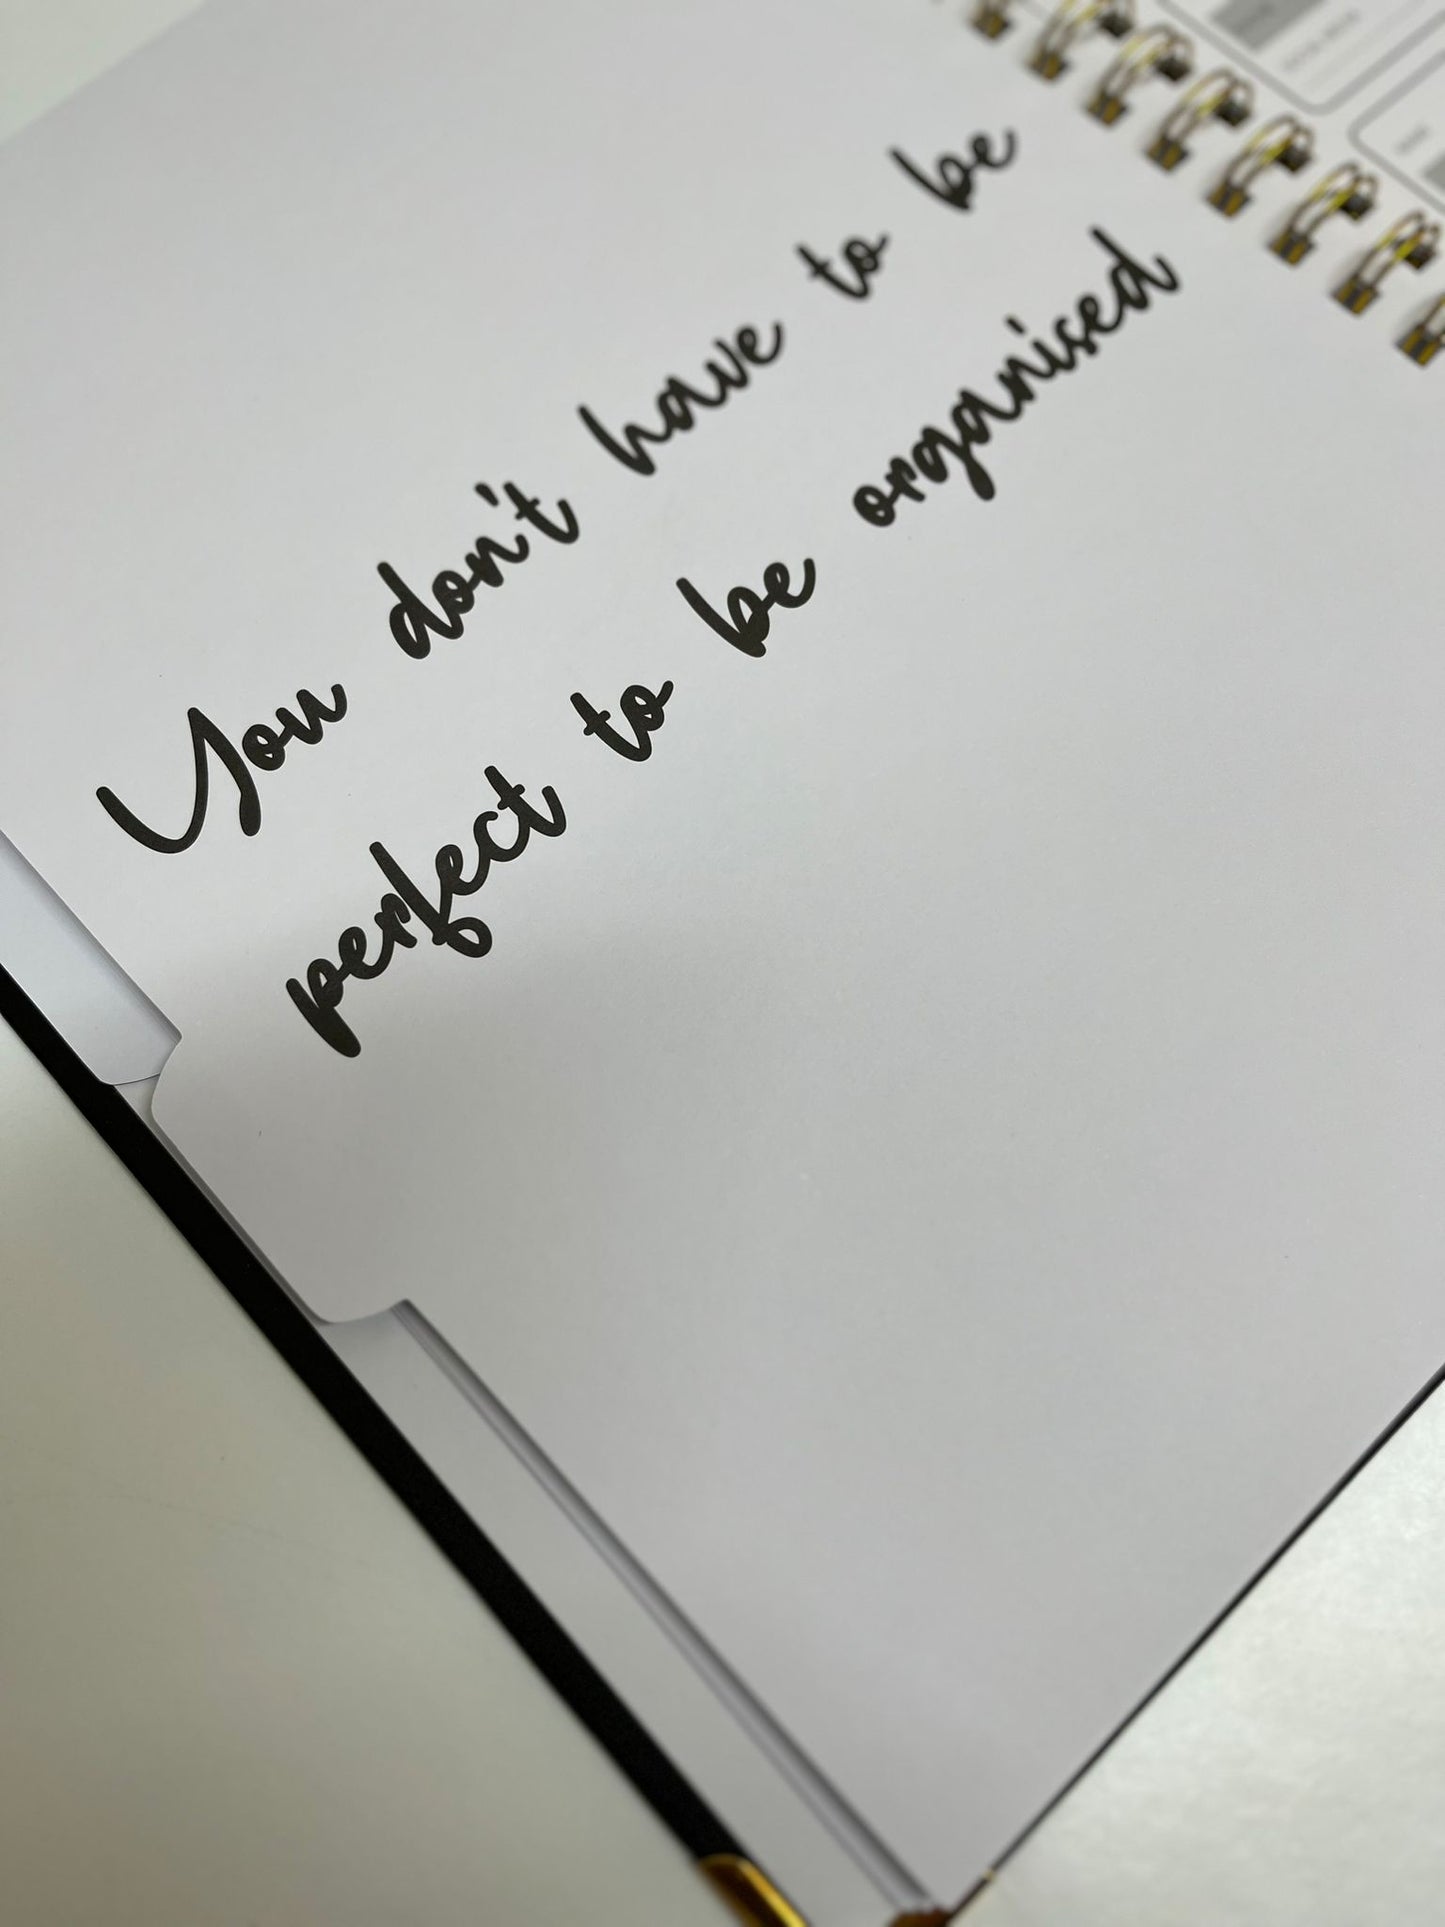 You don't have to be
perfect to be organised